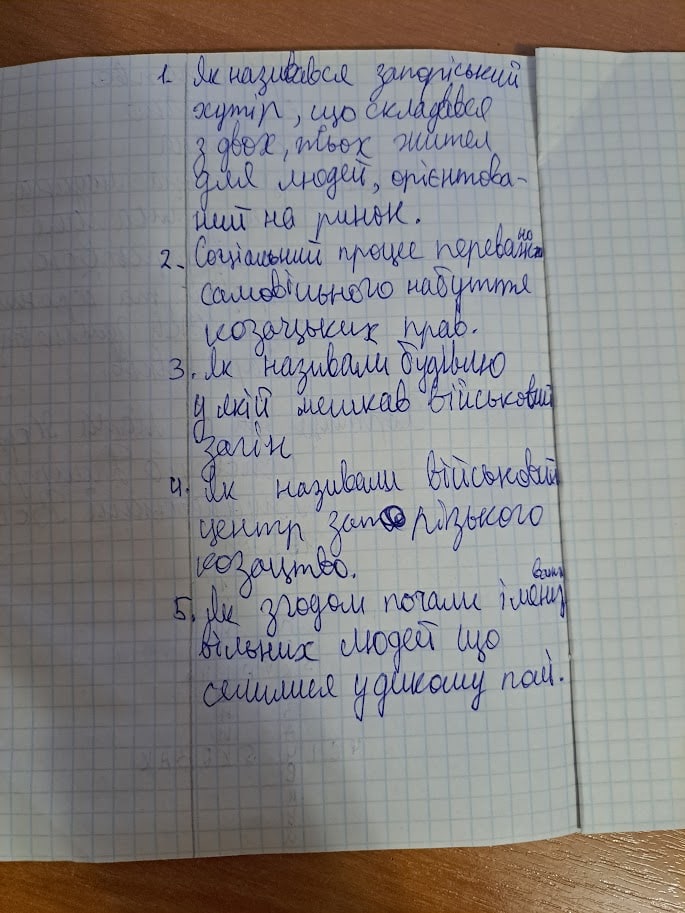 1. Як називався запоріський
хутір, що складався
з двох, трьох жител
для людей, орієнтова-
ний на ринок.
2. Соціальний процес переважно
самовільного набуття
козацьких прав.
3. Як називали будівлю
у якій мешкав військовий
загін
4. Як називали військовий
центр запорізького
козацтво.
5. Як згодом почали іменувати
вільних людей що
селилися у дикому полі.